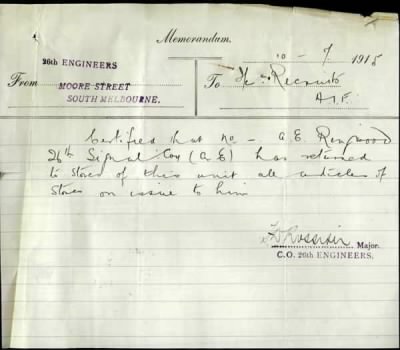 Memorandum.
26th ENGINEERS
10 - 7 1915
From MOORE STREET
SOUTH MELBOURNE.
To Recruits
A.I.F.
Certified that no - A.E. Ringwood
26th Signal Coy (A.E) has returned
to stores of this unit all articles of
stores on issue to him
Major.
C.O. 26th ENGINEERS.